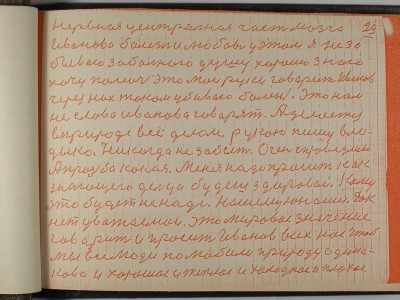 Нервная центральная част мозга 23
Иванова болезни любови у этом я не за
бываю забочаю душу хорошо знаю
хочу помоч это мои руки говарит Иванов
через них током убиваю болен. Это нам
не слова иванова говарят. А делается
вприроде всё делом, рукою пишу вла
дыко. Никогда не забыт. Очен справедливо
А прозба какая. Меня надо просит как
знающего делца будеш здоровой. Кому
это будет не надо. Нашим юношам. Так
нет уважаемои. Это мировое значение
говарит и просит Иванов всех нас чтоб
мы все люди полюбили природу одина-
ково, и хорошое и теплое и холодное и плохое